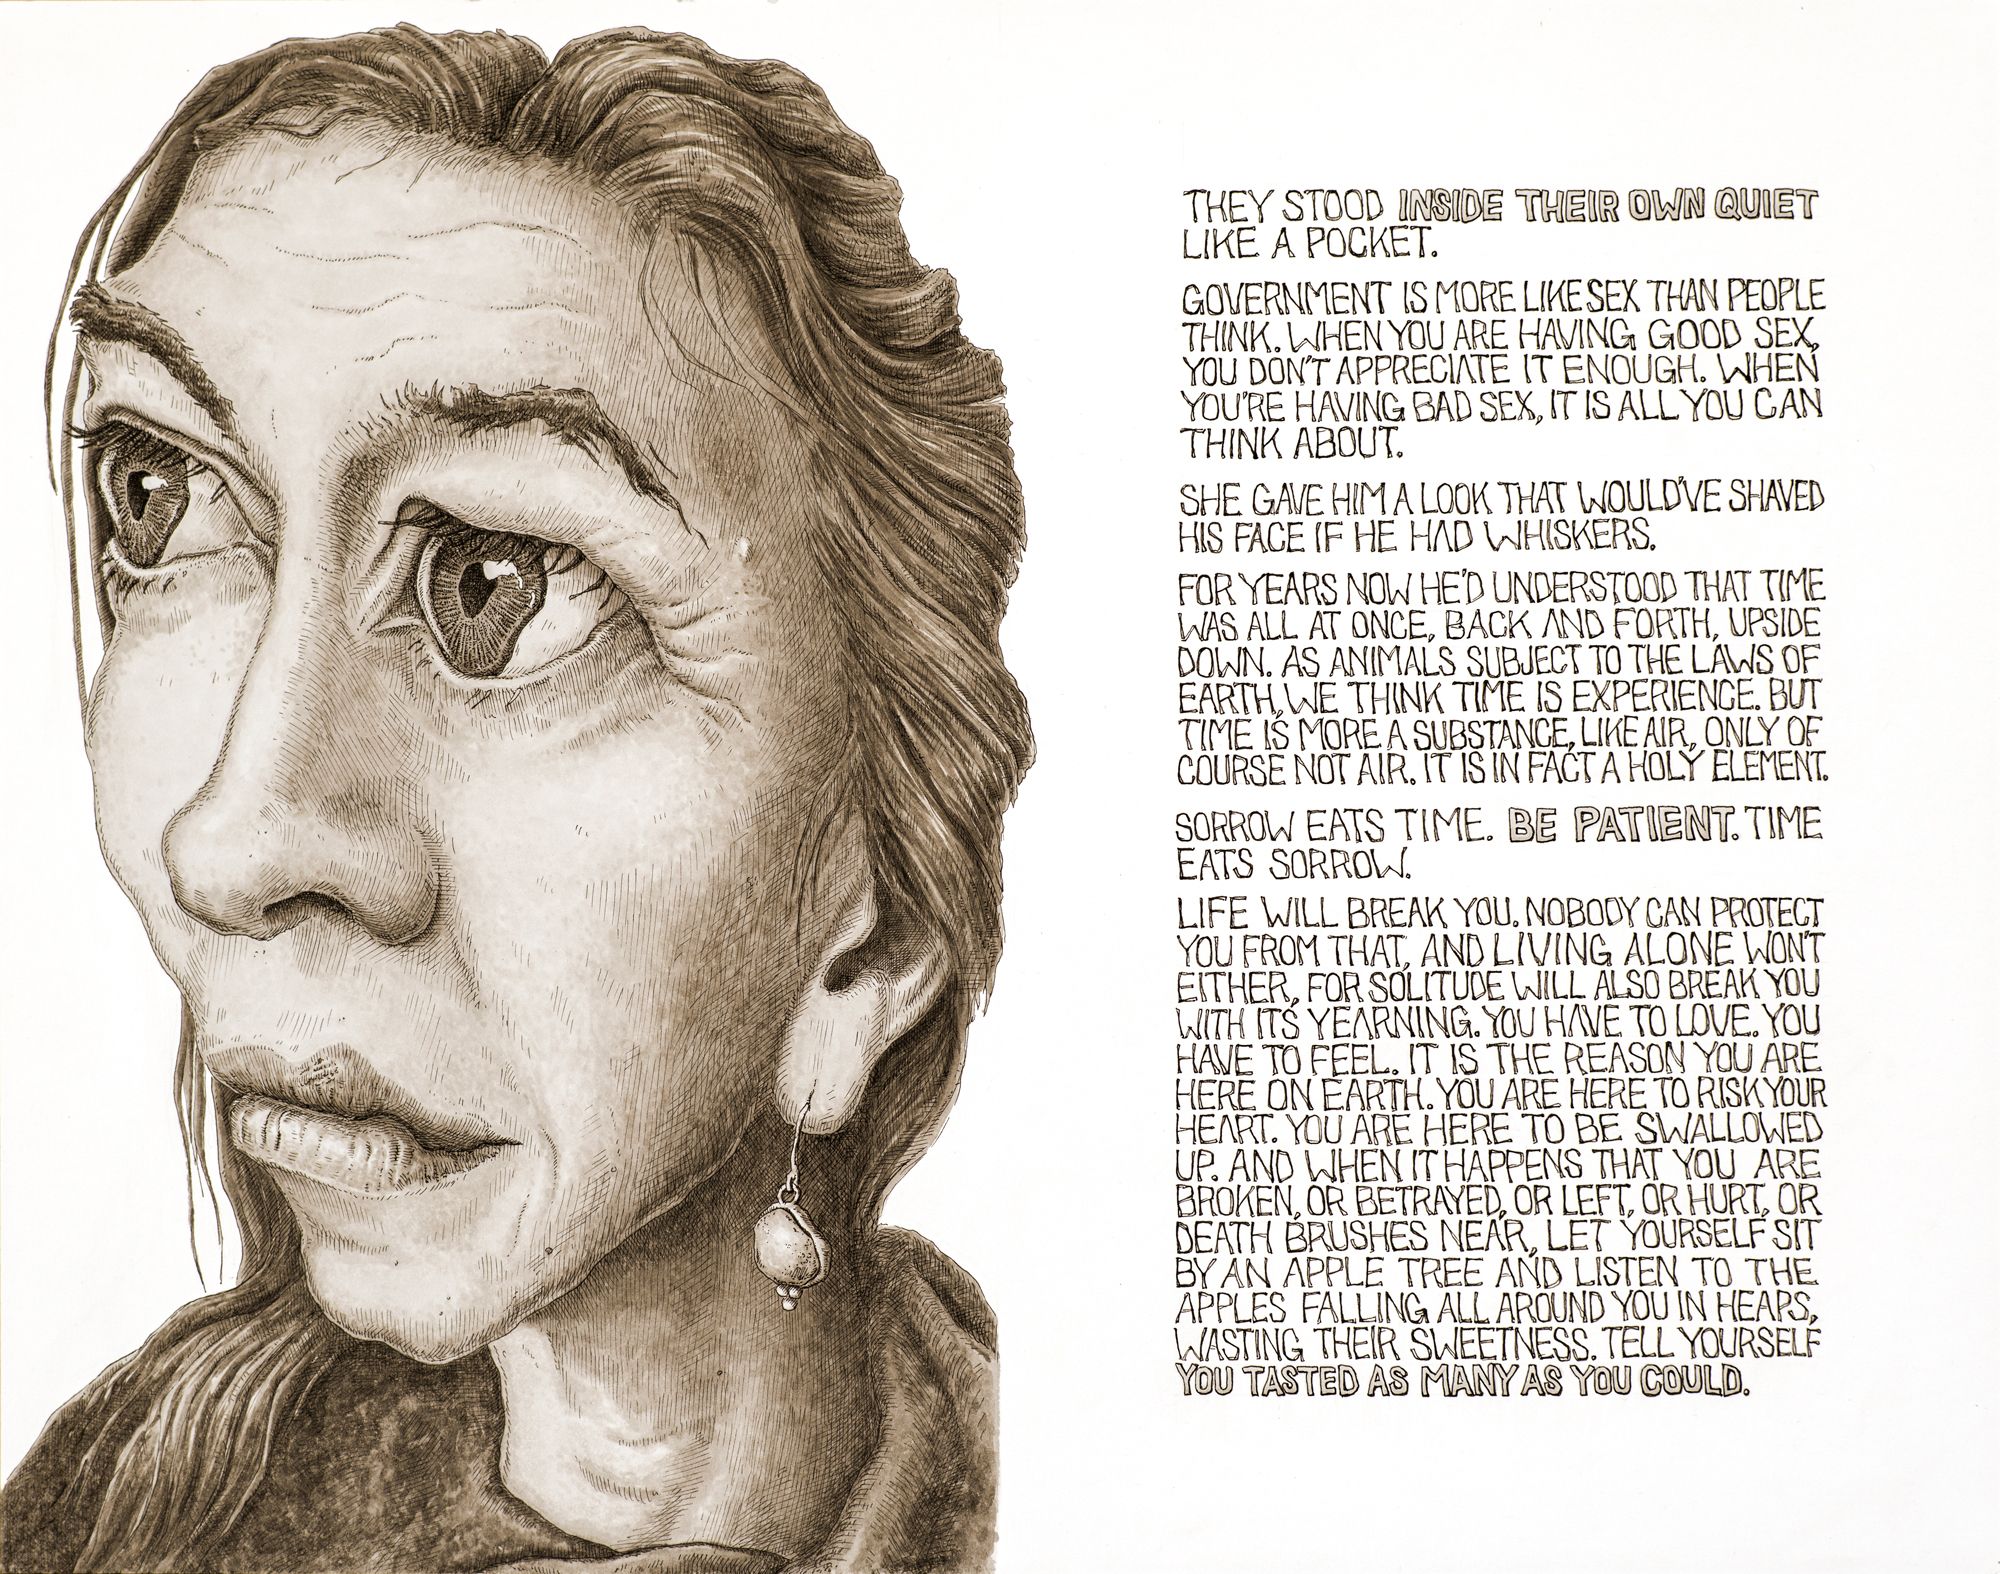 THEY STOOD INSIDE THEIR OWN QUIET
LIKE A POCKET.
GOVERNMENT IS MORE LIKE SEX THAN PEOPLE
THINK. WHEN YOU ARE HAVING GOOD SEX,
YOU DON'T APPRECIATE IT ENOUGH. WHEN
YOU'RE HAVING BAD SEX, IT IS ALL YOU CAN
THINK ABOUT.
SHE GAVE HIM A LOOK THAT WOULD'VE SHAVED
HIS FACE IF HE HAD WHISKERS.
FOR YEARS NOW HE'D UNDERSTOOD THAT TIME
WAS ALL AT ONCE, BACK AND FORTH, UPSIDE
DOWN. AS ANIMALS SUBJECT TO THE LAWS OF
EARTH, WE THINK TIME IS EXPERIENCE. BUT
TIME IS MORE A SUBSTANCE, LIKE AIR, ONLY OF
COURSE NOT AIR. IT IS IN FACT A HOLY ELEMENT.
SORROW EATS TIME. BE PATIENT. TIME
EATS SORROW.
LIFE WILL BREAK YOU. NOBODY CAN PROTECT
YOU FROM THAT, AND LIVING ALONE WON'T
EITHER, FOR SOLITUDE WILL ALSO BREAK YOU
WITH ITS YEARNING. YOU HAVE TO LOVE. YOU
HAVE TO FEEL. IT IS THE REASON YOU ARE
HERE ON EARTH. YOU ARE HERE TO RISK YOUR
HEART. YOU ARE HERE TO BE SWALLOWED
UP. AND WHEN IT HAPPENS THAT YOU ARE
BROKEN, OR BETRAYED, OR LEFT, OR HURT, OR
DEATH BRUSHES NEAR, LET YOURSELF SIT
BY AN APPLE TREE AND LISTEN TO THE
APPLES FALLING ALL AROUND YOU IN HEAPS,
WASTING THEIR SWEETNESS. TELL YOURSELF
YOU TASTED AS MANY AS YOU COULD.